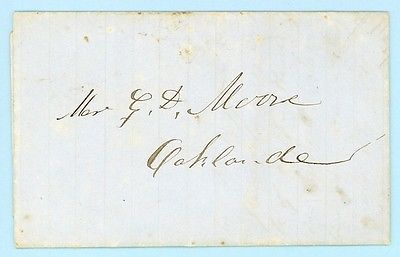 Mr G. D. Moore
Oaklande